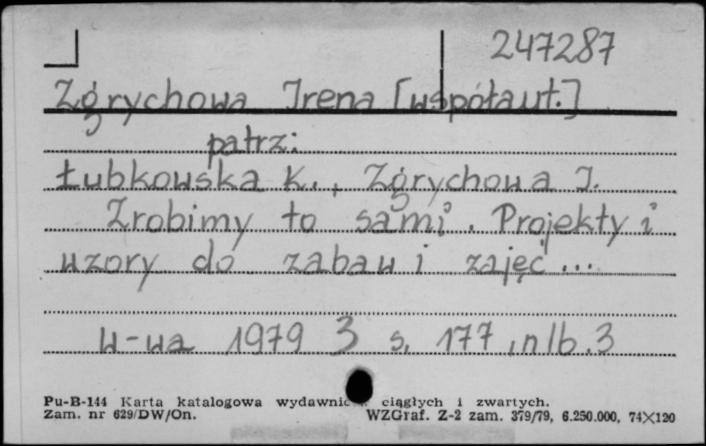 247287
Zgrychowa Irena [współaut.]
patrz:
Łubkowska K., Zgrychowa I.
Zrobimy to sami. Projekty i
wzory do zabaw i zajęć...
W-wa 1979 3 s. 177, nlb. 3
Pu-B-144 Karta katalogowa wydawnic ciągłych i zwartych.
Zam. nr 629/DW/On. WZGraf. Z-2 zam. 379/79, 6.250.000, 74×120